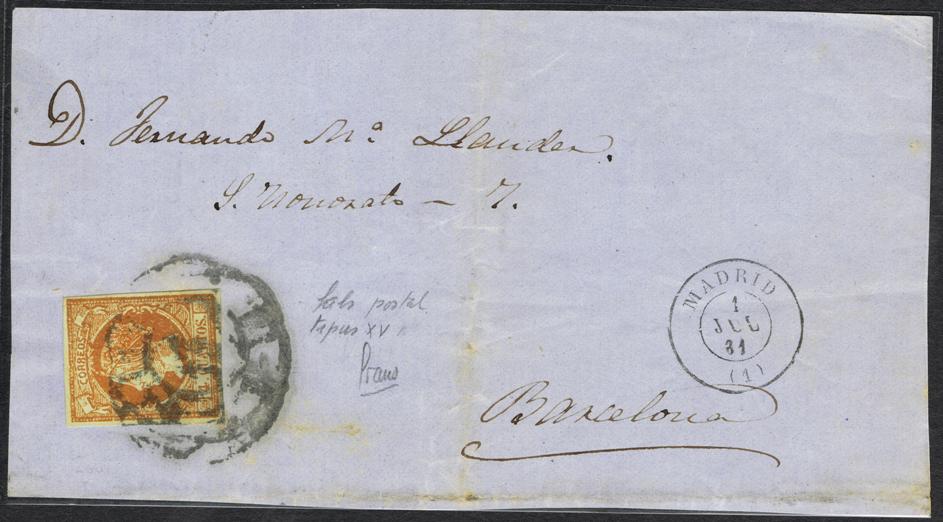 D. Fernando Mª Llauder.
S. Honorato – 7.
CORREOS
CUARTOS.
Fals postal
tipus XV
MADRID
1
JUL
61
(1)
Barcelona